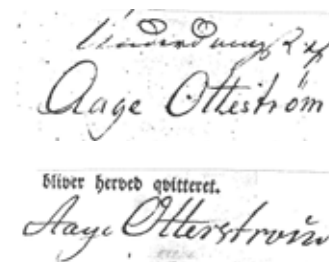 Aage Otteström
bliver herved qvitteret.
Aage Otterstrøm